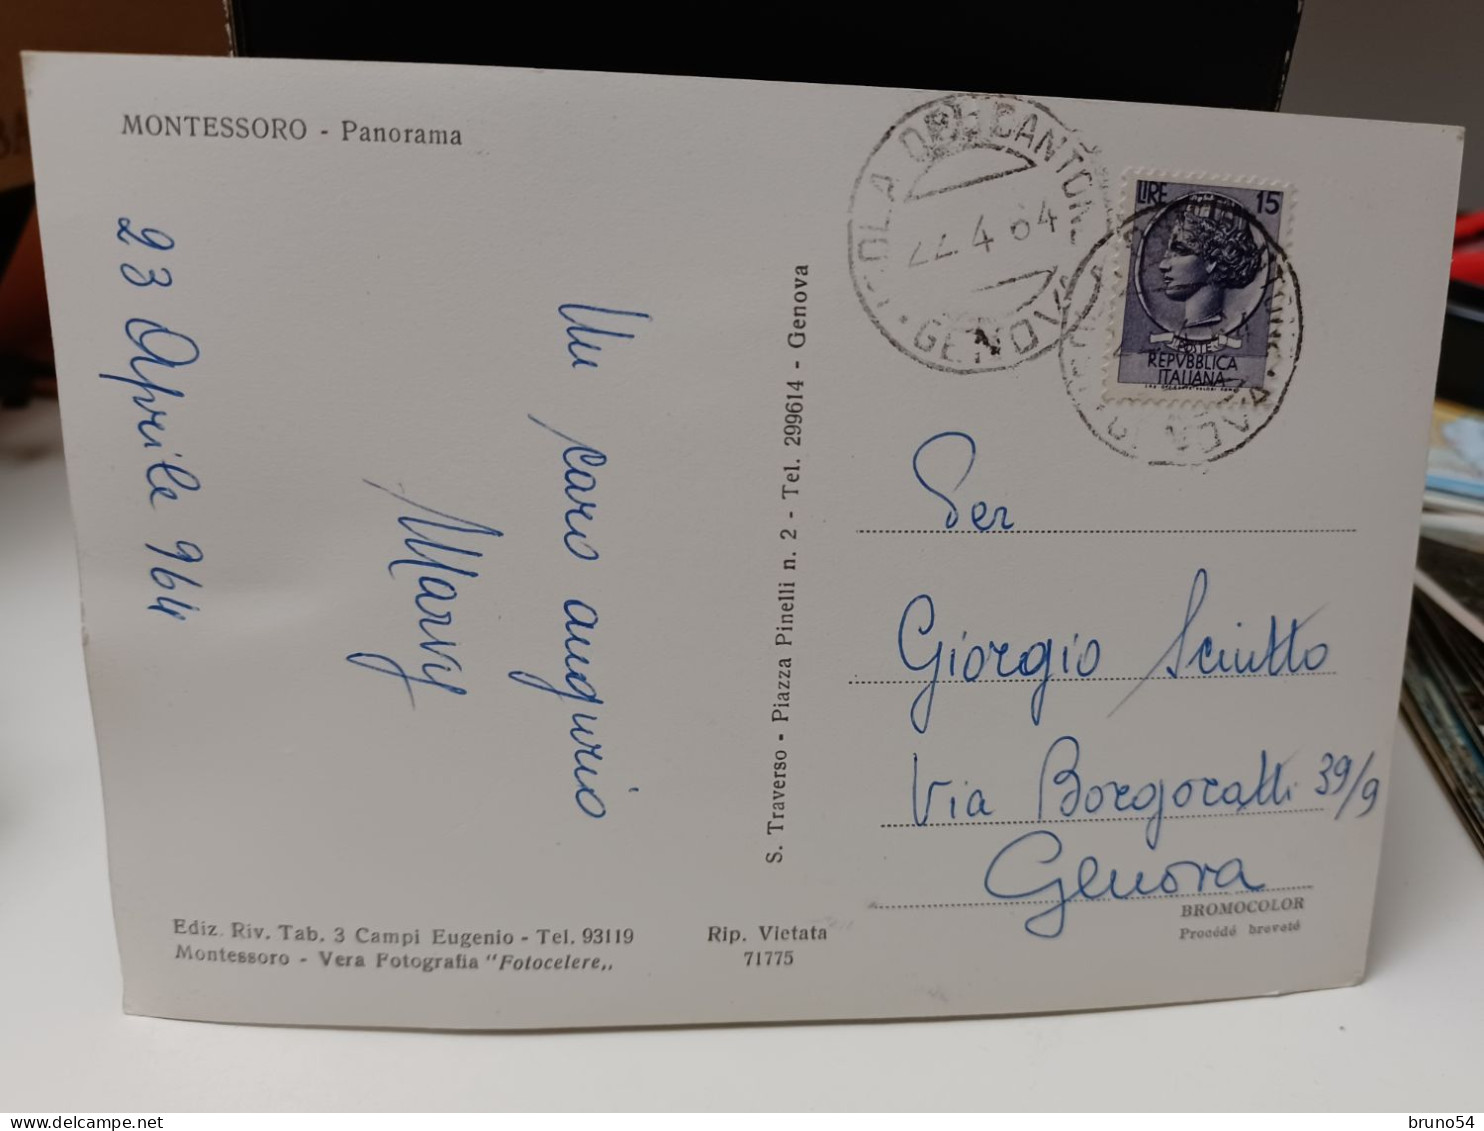 MONTESSORO - Panorama
23 Aprile 964
Un caro augurio
Mary
S. Traverso - Piazza Pinelli n. 2 - Tel. 299614 - Genova
ISOLA DEL CANTONE
22.4.64
GENOVA
LIRE 15
POSTE
REPVBBLICA
ITALIANA
Per
Giorgio Sciutto
Via Borgoratti 39/9
Genova
BROMOCOLOR
Procédé breveté
Ediz. Riv. Tab. 3 Campi Eugenio - Tel. 93119
Montessoro - Vera Fotografia "Fotocelere„
Rip. Vietata
71775
bruno54